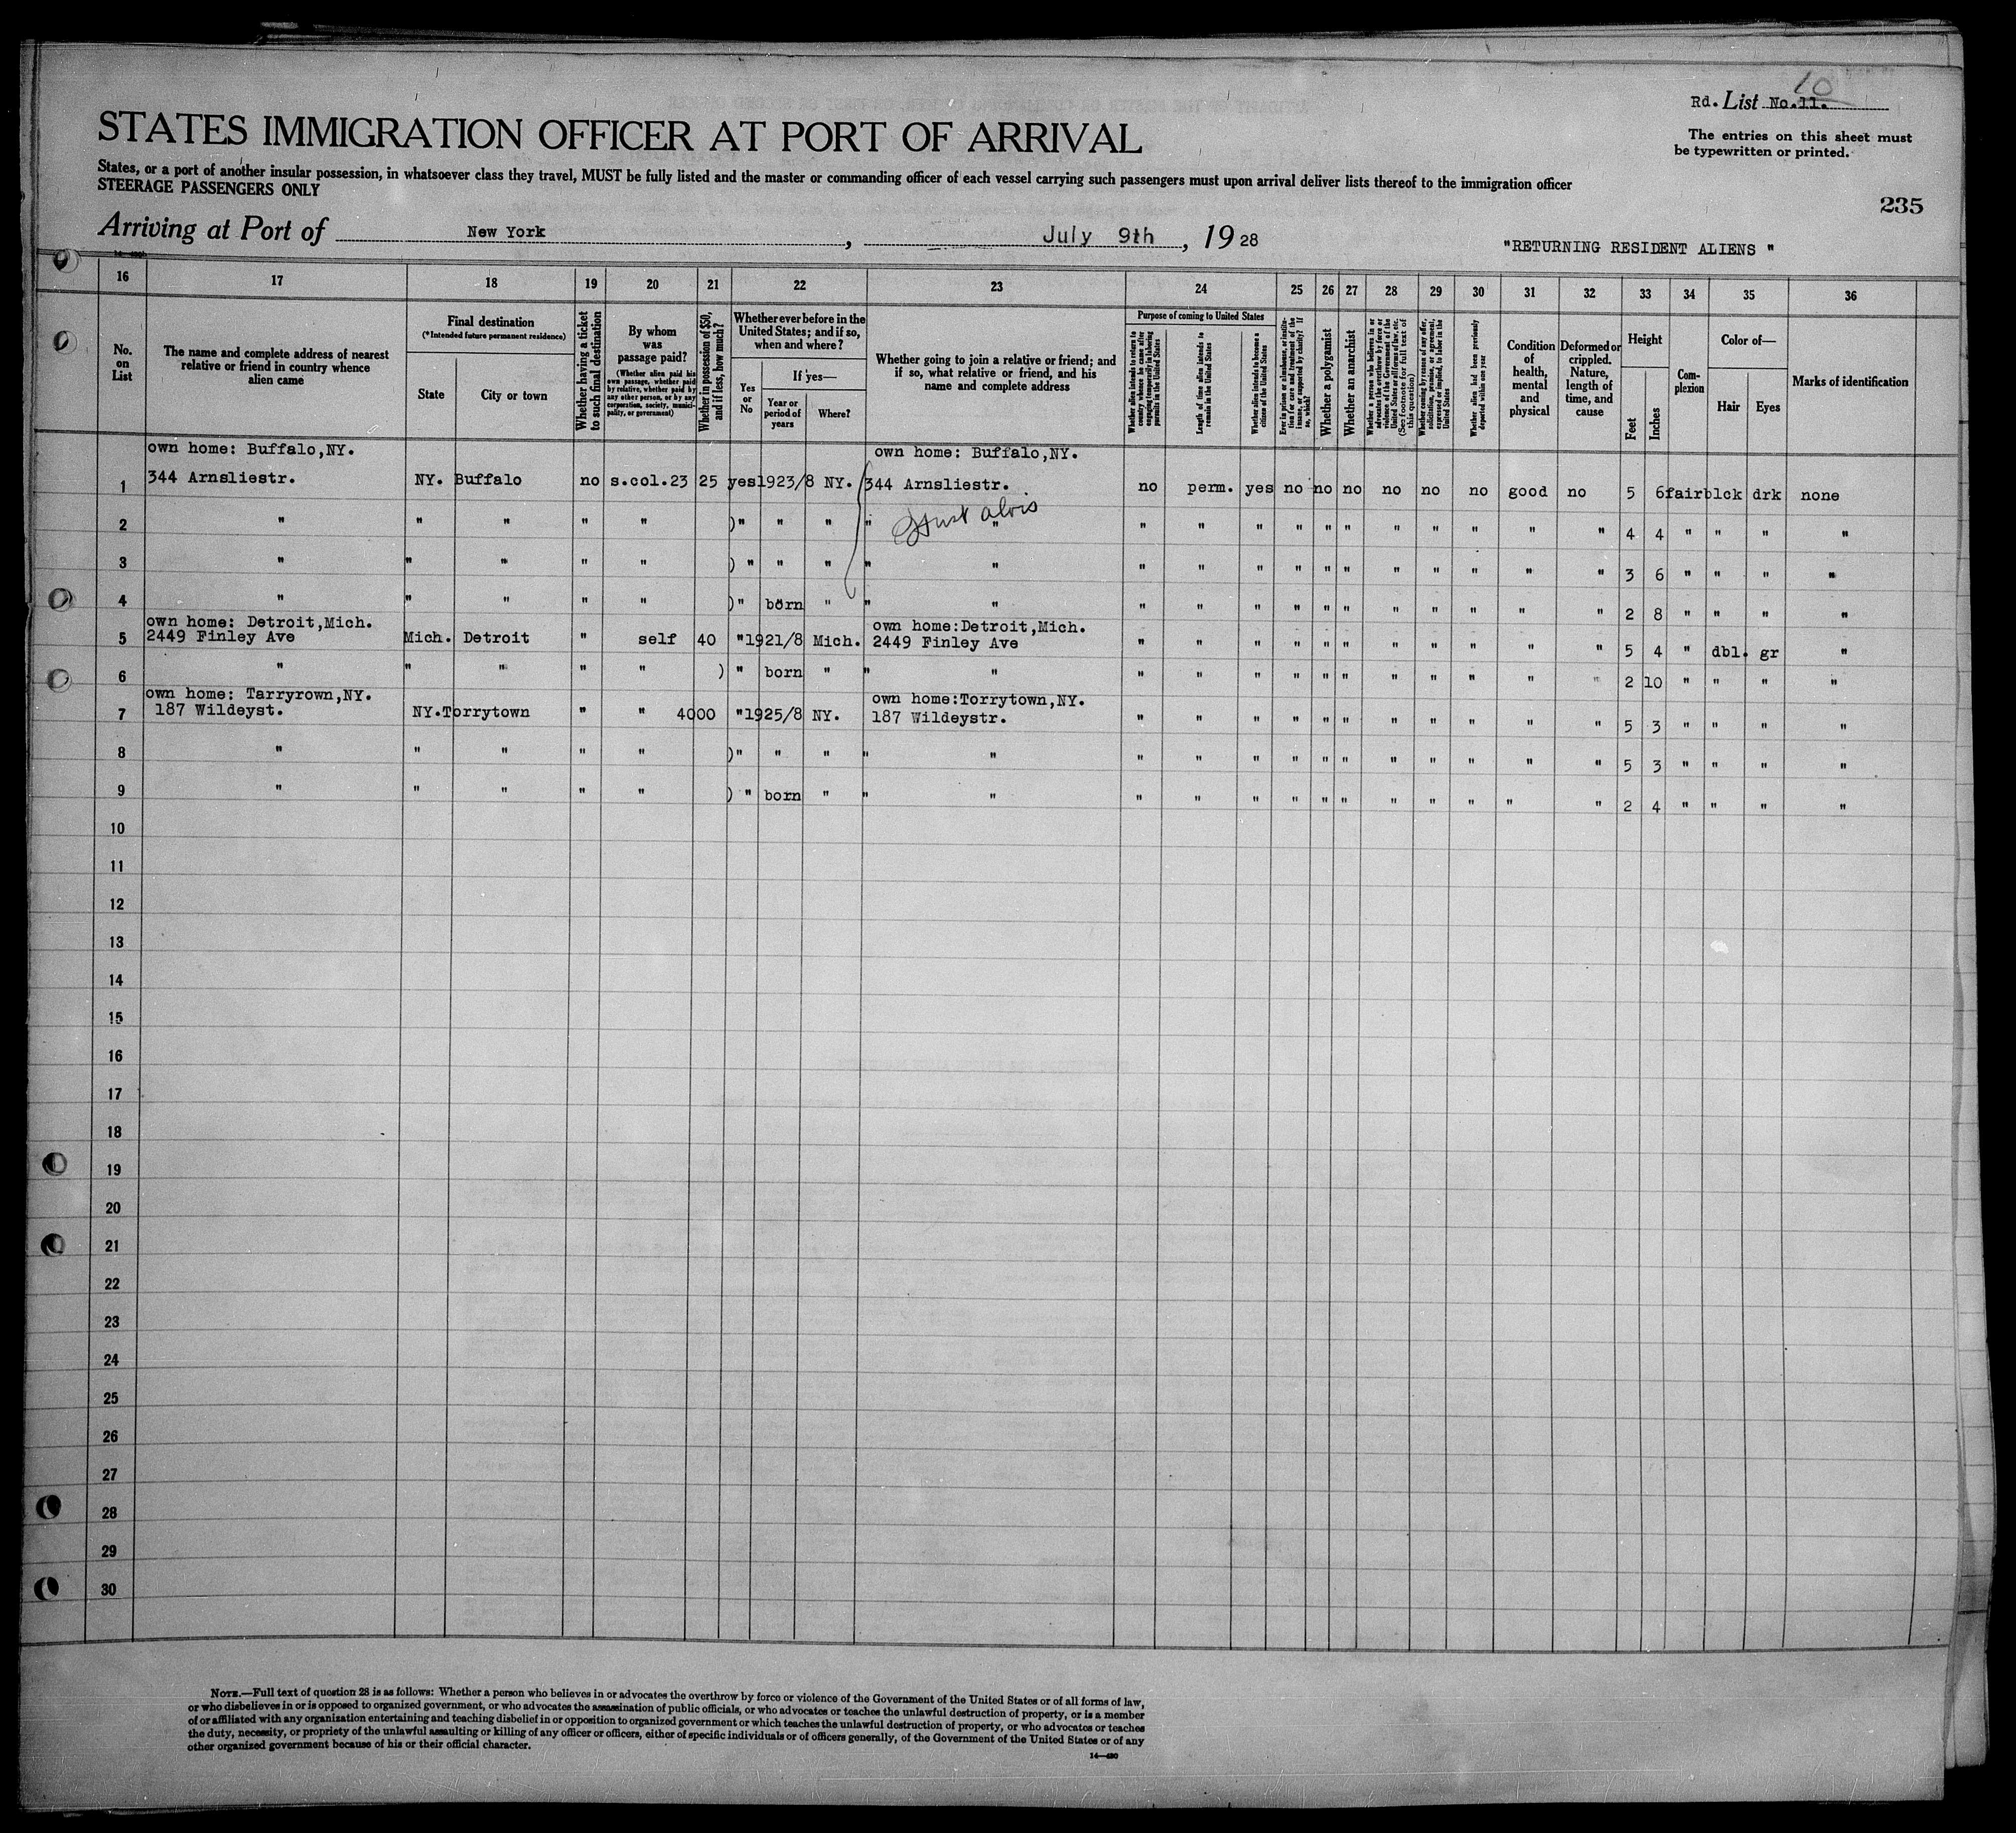 10
Rd. List No.11.
STATES IMMIGRATION OFFICER AT PORT OF ARRIVAL
The entries on this sheet must
be typewritten or printed.
States, or a port of another insular possession, in whatsoever class they travel, MUST be fully listed and the master or commanding officer of each vessel carrying such passengers must upon arrival deliver lists thereof to the immigration officer
STEERAGE PASSENGERS ONLY
235
Arriving at Port of New York, July 9th, 1928
"RETURNING RESIDENT ALIENS "
16 17 18 19 20 21 22 23 24 25 26 27 28 29 30 31 32 33 34 35 36
No. on List
The name and complete address of nearest relative or friend in country whence alien came
Final destination
(*Intended future permanent residence)
State
City or town
Whether having a ticket to such final destination
By whom was passage paid?
(Whether alien paid his own passage, whether paid by relative, whether paid by any other person, or by any corporation, society, municipality, or government)
Whether in possession of $50, and if less, how much?
Whether ever before in the United States; and if so, when and where?
Yes or No
If yes—
Year or period of years
Where?
Whether going to join a relative or friend; and if so, what relative or friend, and his name and complete address
Purpose of coming to United States
Whether alien intends to return to country whence he came after engaging temporarily in laboring pursuits in the United States
Length of time alien intends to remain in the United States
Whether alien intends to become a citizen of the United States
Ever in prison or almshouse, or institution for care and treatment of the insane, or supported by charity? If so, which?
Whether a polygamist
Whether an anarchist
Whether a person who believes in or advocates the overthrow by force or violence of the Government of the United States or all forms of law, etc. (See footnote for full text of this question)
Whether coming by reason of any offer, solicitation, promise, or agreement, expressed or implied, to labor in the United States
Whether alien had been previously deported within one year
Condition of health, mental and physical
Deformed or crippled. Nature, length of time, and cause
Height
Feet
Inches
Complexion
Color of—
Hair
Eyes
Marks of identification
own home: Buffalo,NY. own home: Buffalo,NY.
1 344 Arnsliestr. NY. Buffalo no s.col.23 25 yes 1923/8 NY. 344 Arnsliestr. no perm. yes no no no no no no good no 5 6 fair blck drk none
2 " " " " " )" " " " " " " " " " " " " " " " 4 4 " " " "
3 " " " " " ) " " " " " " " " " " " " " " " " 3 6 " " " "
4 " " " " " )" born " " " " " " " " " " " " " " 2 8 " " " "
own home: Detroit,Mich. own home:Detroit,Mich.
5 2449 Finley Ave Mich. Detroit " self 40 " 1921/8 Mich. 2449 Finley Ave " " " " " " " " " " " 5 4 " dbl. gr "
6 " " " " " ) " born " " " " " " " " " " " " " " 2 10 " " " "
own home: Tarryrown,NY. own home:Torrytown,NY.
7 187 Wildeyst. NY. Torrytown " " 4000 " 1925/8 NY. 187 Wildeystr. " " " " " " " " " " " 5 3 " " " "
8 " " " " " )" " " " " " " " " " " " " " " " 5 3 " " " "
9 " " " " " ) " born " " " " " " " " " " " " " " 2 4 " " " "
10
11
12
13
14
15
16
17
18
19
20
21
22
23
24
25
26
27
28
29
30
NOTE.—Full text of question 28 is as follows: Whether a person who believes in or advocates the overthrow by force or violence of the Government of the United States or of all forms of law,
or who disbelieves in or is opposed to organized government, or who advocates the assassination of public officials, or who advocates or teaches the unlawful destruction of property, or is a member
of or affiliated with any organization entertaining and teaching disbelief in or opposition to organized government or which teaches the unlawful destruction of property, or who advocates or teaches
the duty, necessity, or propriety of the unlawful assaulting or killing of any officer or officers, either of specific individuals or of officers generally, of the Government of the United States or of any
other organized government because of his or their official character.
14—430